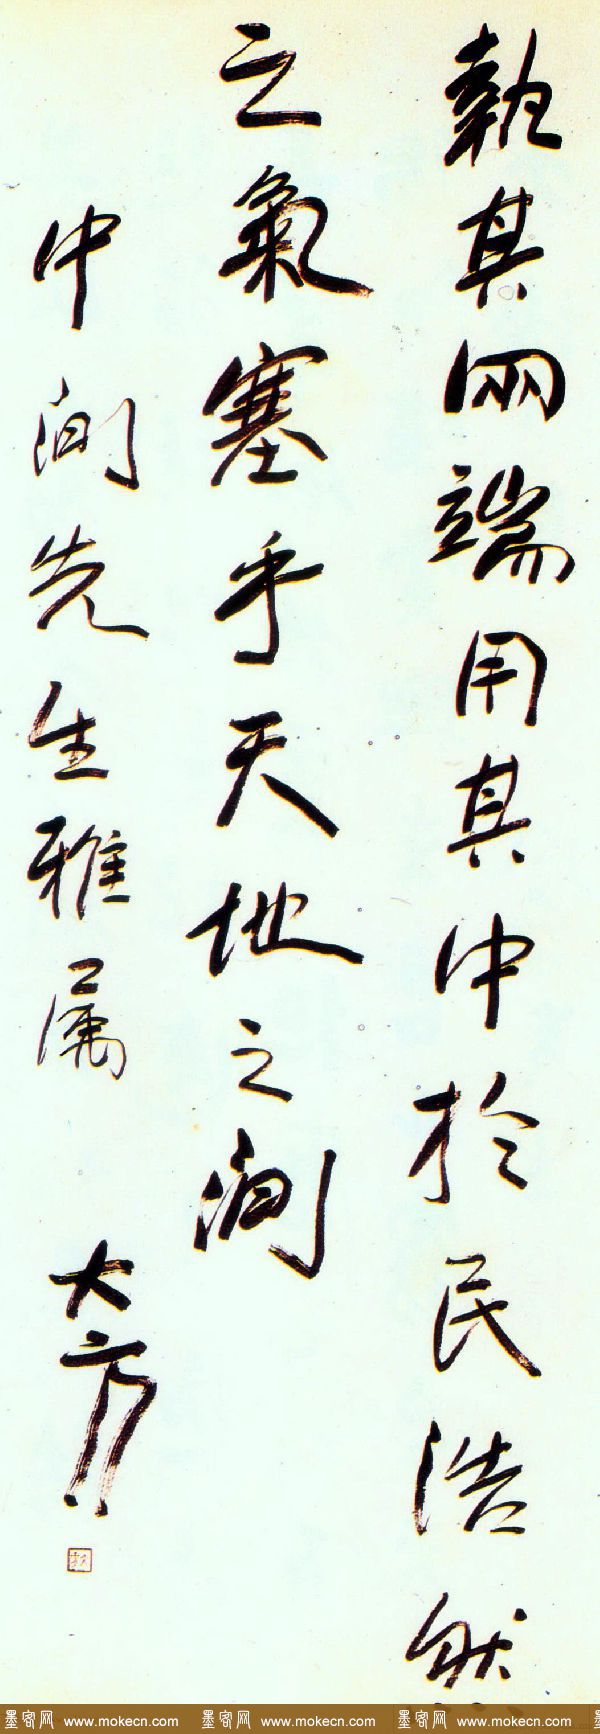 執其兩端用其中於民浩然
之氣塞乎天地之間
中間先生雅屬
大方
墨客网 www.mokecn.com 墨客网 www.mokecn.com 墨客网 www.mokecn.com